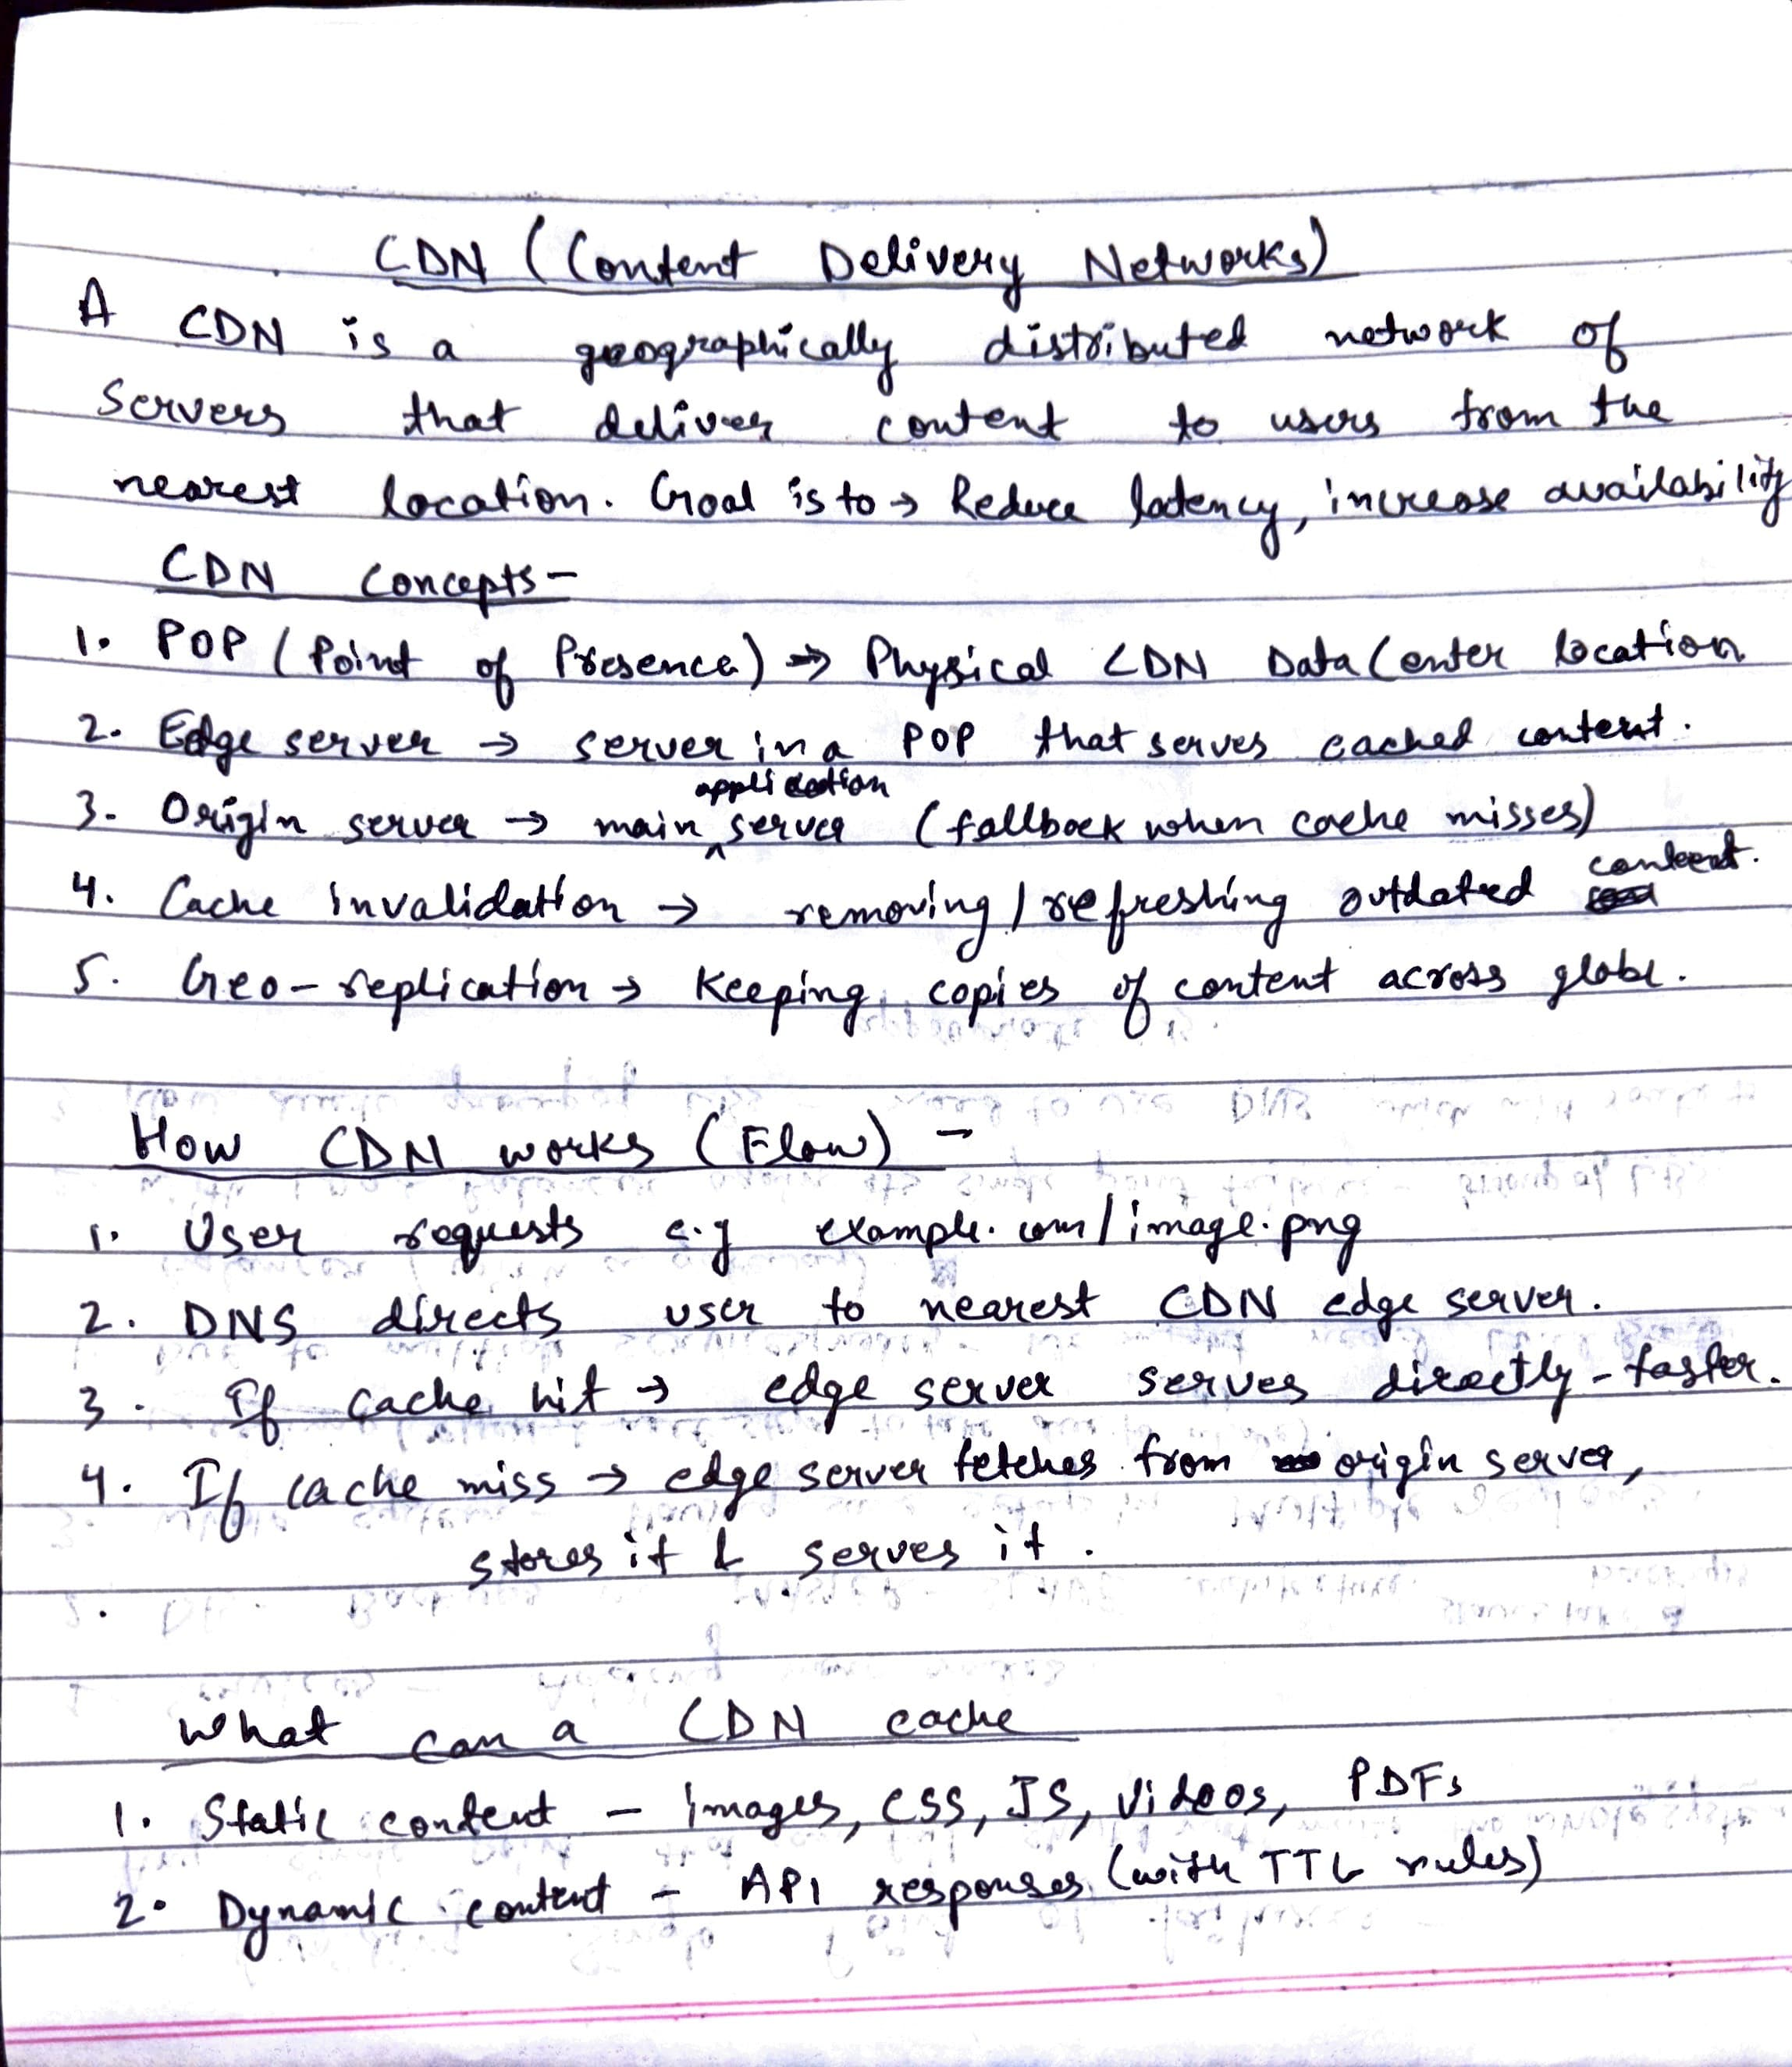 CDN (Content Delivery Networks)
A CDN is a geographically distributed network of
servers that deliver content to users from the
nearest location. Goal is to → Reduce latency, increase availability
CDN Concepts -
1. POP (Point of Presence) → Physical CDN Data Center location
2. Edge server → server in a POP that serves cached content.
3. Origin server → main application server (fallback when cache misses)
4. Cache invalidation → removing / refreshing outdated content.
5. Geo-replication → Keeping copies of content across globe.
How CDN works (Flow) -
1. User requests e.g example.com/image.png
2. DNS directs user to nearest CDN edge server.
3. If cache hit → edge server serves directly - faster.
4. If cache miss → edge server fetches from origin server,
stores it & serves it.
What can a CDN cache
1. Static content - images, CSS, JS, Videos, PDFs
2. Dynamic content - API responses (with TTL rules)